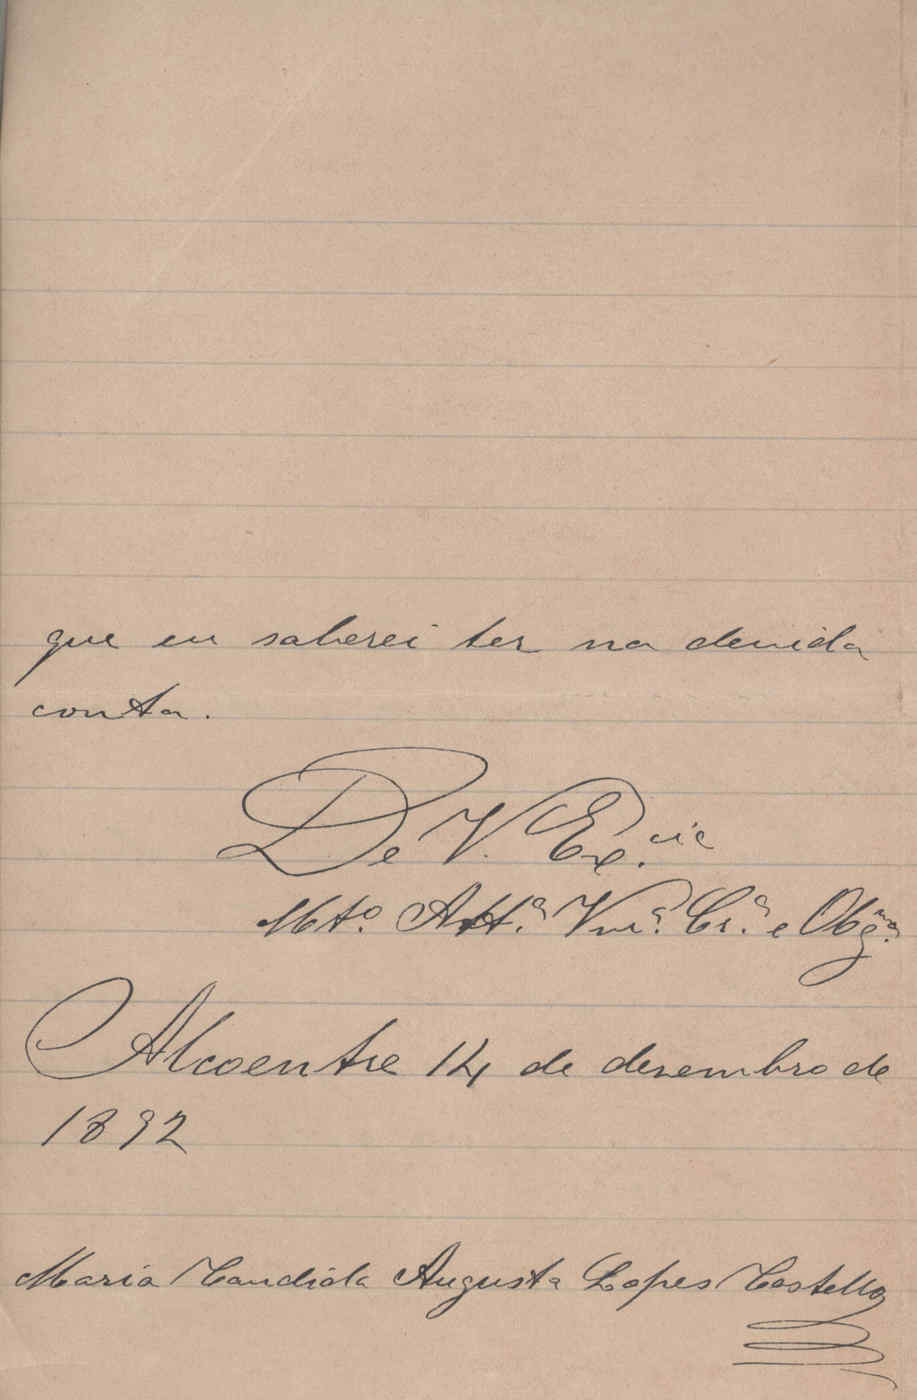 que eu saberei ter na devida
conta.
De V. Ex.cia
Mto. Att.a Vnr.a Cr.a e Obg.ma
Alcoentre 14 de dezembro de
1892
Maria Candida Augusta Lopes Costello